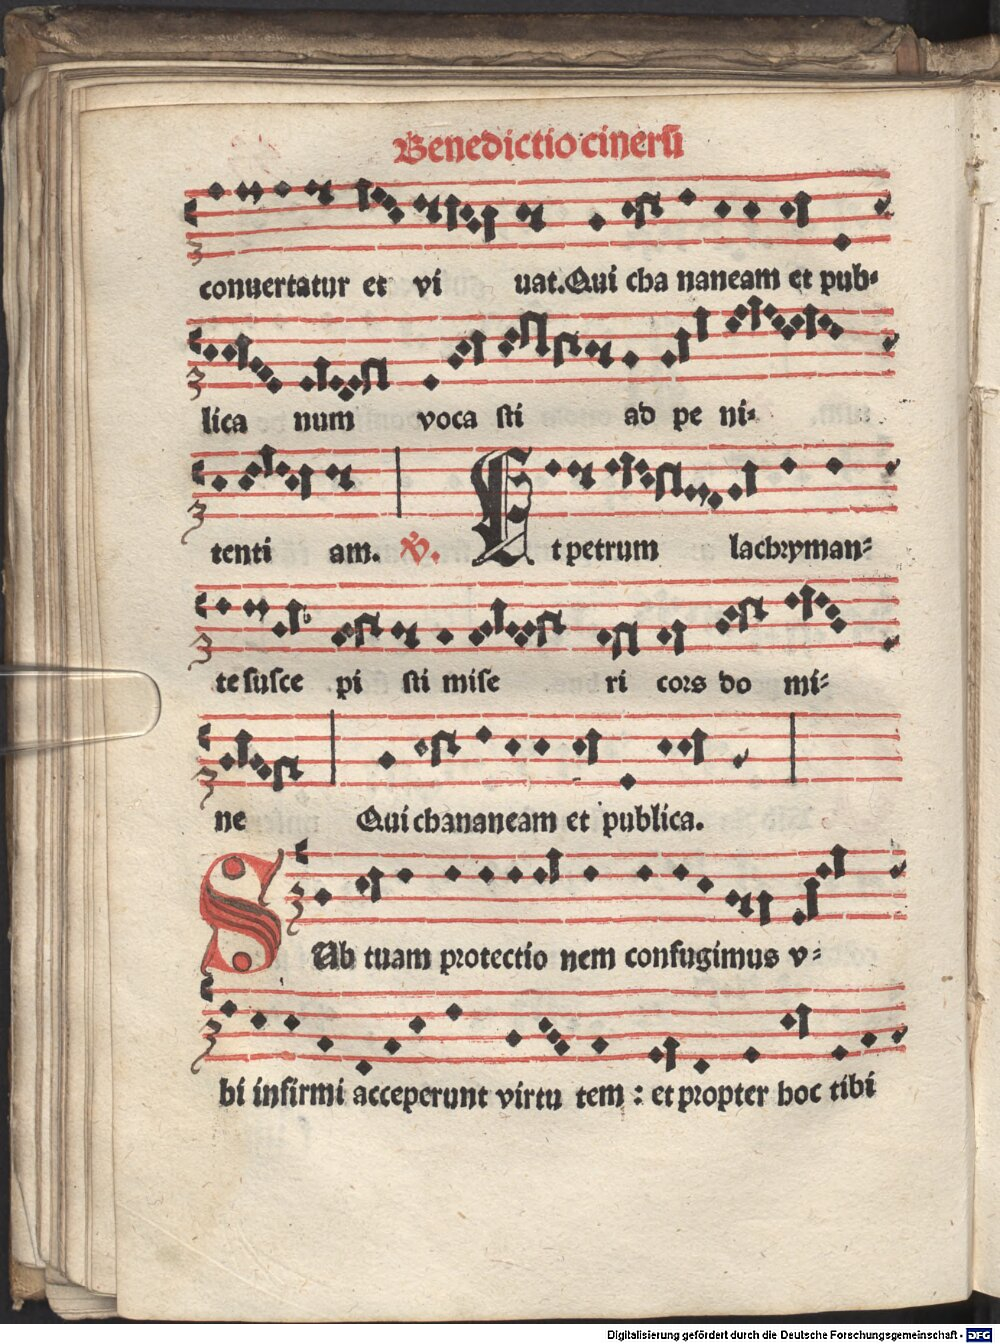 Benedictio cineru
conuertatur et vi uat. Qui cha naneam et pub-
lica num voca sti ad pe ni-
tenti am. V. Et petrum lachryman-
te susce pi sti mise ri cors do mi-
ne Qui chananeam et publica.
SUb tuam protectio nem confugimus v-
bi infirmi acceperunt virtu tem : et propter hoc tibi
Digitalisierung gefördert durch die Deutsche Forschungsgemeinschaft - DFG